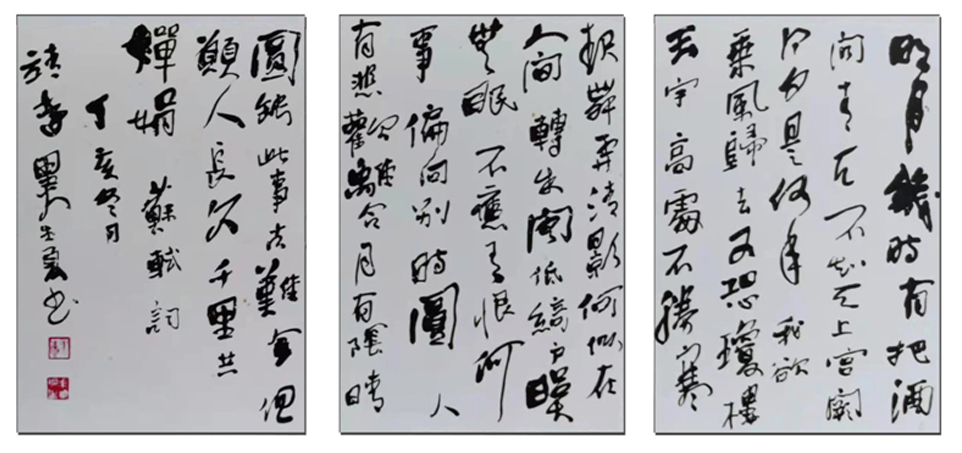 明月幾時有把酒
問青天不知天上宫闕
今夕是何年我欲
乘風歸去又恐瓊樓
玉宇高處不勝寒
起舞弄清影何似在
人间轉朱阁低綺户照
無眠不應有恨何
事偏向别時圓人
有悲歡離合月有陰晴
圓缺此事古難全但
願人長久千里共
嬋娟蘇軾詞
丁亥冬月
书